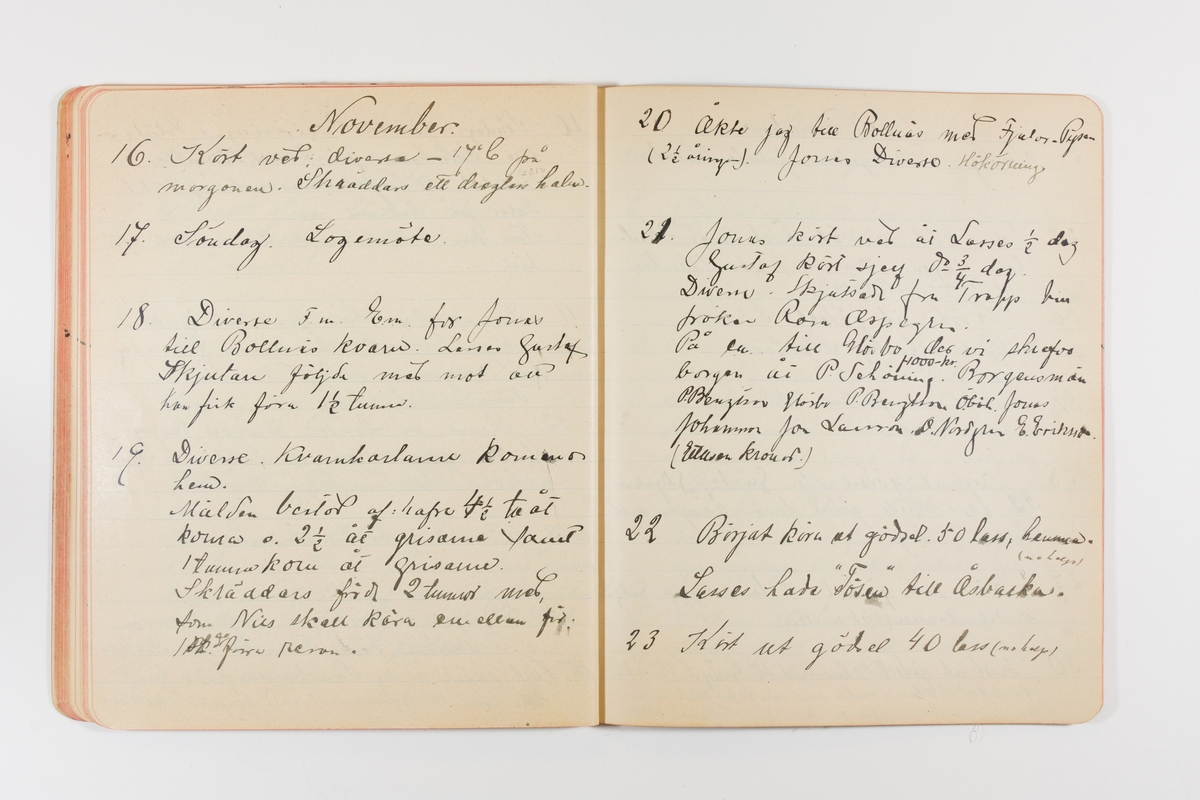 November.
16. Kört ved; diverse – 17°C på
morgonen. Skräddars ett dragglass halm.
17. Söndag. Logemöte.
18. Diverse f.m. Em. for Jonas
till Bollnäs kvarn. Lasses Gustaf
Skjutare följde med mot att
han fick föra 1½ tunna.
19. Diverse. Kvarnkarlarne kommo
hem.
Mälden bestod af: hafre 4½ ta åt
korna o. 2½ åt grisarne samt
1 tunna korn åt grisarne.
Skräddars förde 2 tunnor med,
som Nils skall köra emellan för.
1 förra
20 Åkte jag till Bollnäs med
(2½ åring–). Jonas Diverse. Hökörning
21. Jonas kört ved åt Lasses ½ dag
Gustaf kört sjelf do ¾ dag.
Diverse. Skjutsade fru Trapp
fröken Rosa Aspegren.
På em. till Glösbo der vi skrefvo
4000-kr.
borgen åt P. Schöning. Borgensmän
P. Bengtson Glösbo P. Bengtsson Jonas
Johansson Jon Larsson. O. Nordgren E. Eriksson.
kronor.)
22 Börjat köra ut gödsel. 50 lass, hemma.
Lasses hade "Tösen" till Åsbacka.
23 Kört ut gödsel 40 lass